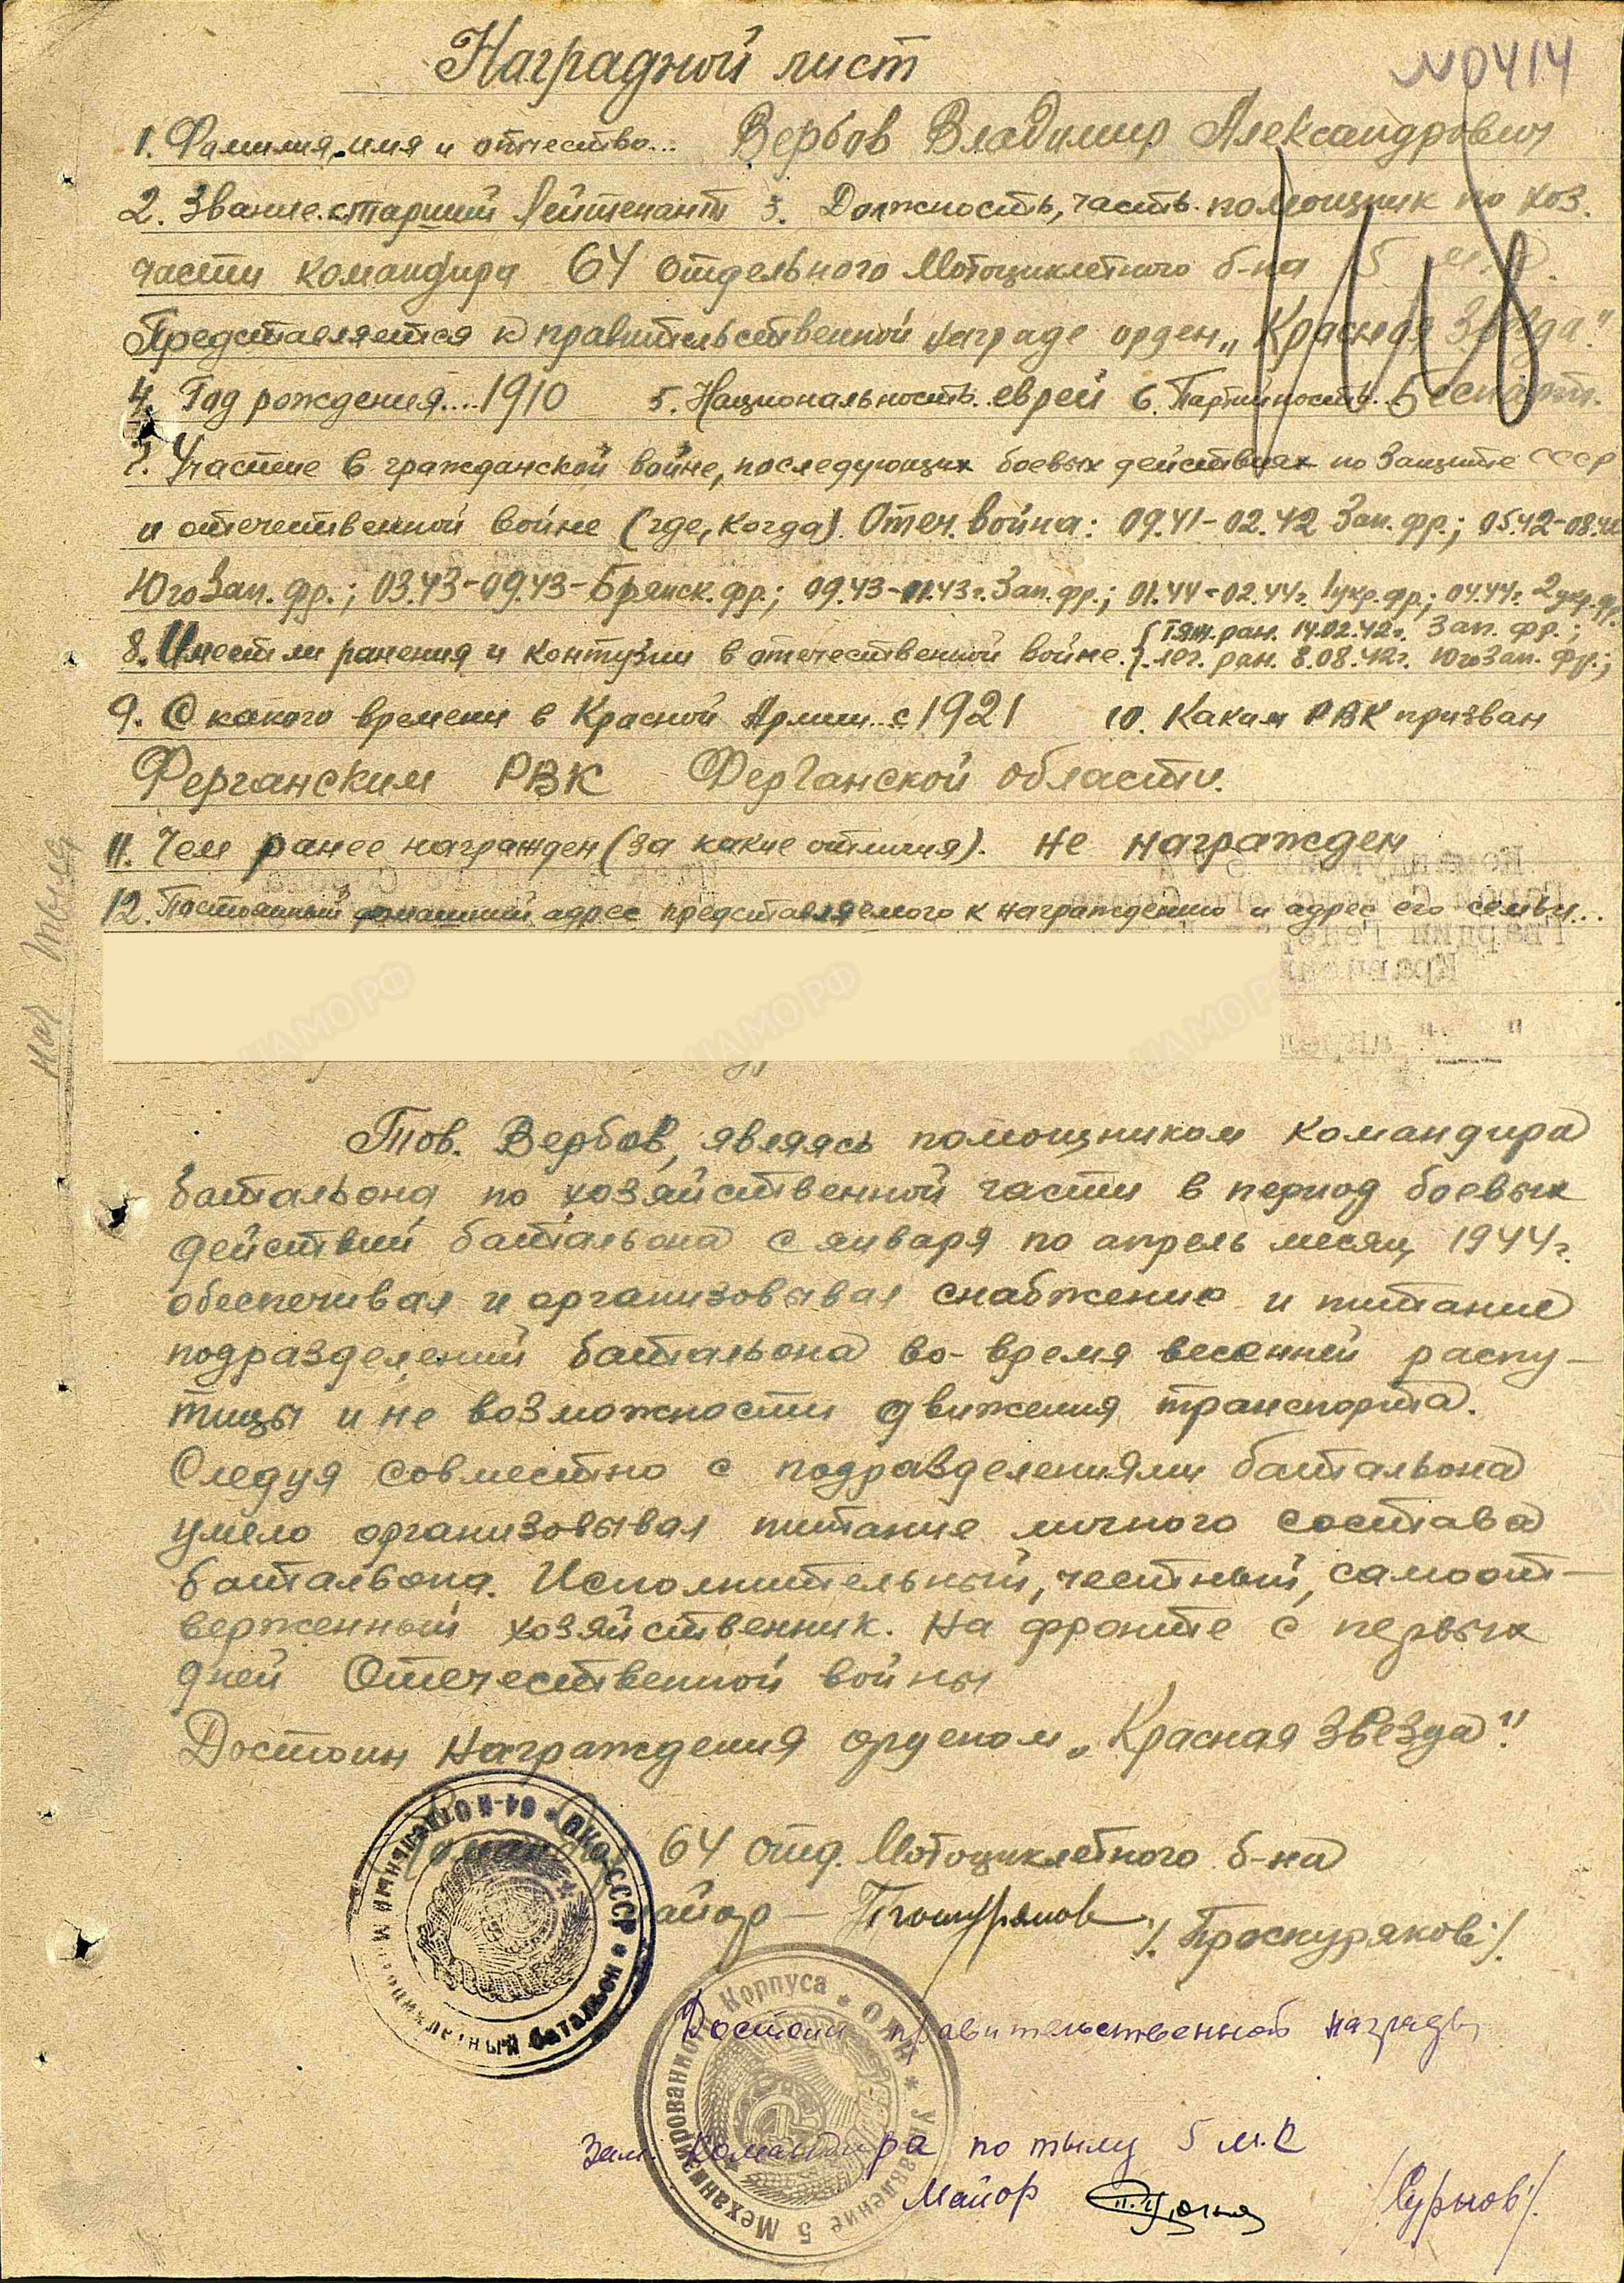 Наградной лист
№0414
1. Фамилия, имя и отчество... Вербов Владимир Александрович
2. Звание. старший лейтенант 3. Должность, часть. помощник по хоз.
части командира 64 отдельного Мотоциклетного б-на 5
Представляется к правительственной награде орден „Красная Звезда".
4. Год рождения....1910 5. Национальность. еврей 6. Партийность. Беспарт.
7. Участие в гражданской войне, последующих боевых действиях по защите СССР
и отечественной войне (где, когда). Отеч. война: 09.41-02.42 Зап. фр.; 05.42-08.42
Юго Зап. фр.; 03.43-09.43-Брянск. фр.; 09.43-11.43г. Зап. фр.; 01.44-02.44г. 1 укр. фр.; 04.44г. 2 укр. фр.
тяж. ран. 14.02.42г. Зап. фр.;
8. Имеет ли ранения и контузии в отечественной войне. лег. ран. 8.08.42г. Юго Зап. фр.;
9. С какого времени в Красной Армии. с 1921 10. Каким РВК призван
Ферганским РВК Ферганской области.
11. Чем ранее награжден (за какие отличия). не награжден
12. Постоянный домашний адрес представляемого к награждению и адрес его семьи..
ЦАМО.РФ ЦАМО.РФ ЦАМО.РФ
Тов. Вербов, являясь помощником командира
батальона по хозяйственной части в период боевых
действий батальона с января по апрель месяц 1944г.
обеспечивал и организовывал снабжение и питание
подразделений батальона во-время весенней распу-
тицы и не возможности движения транспорта.
Следуя совместно с подразделениями батальона
умело организовывал питание личного состава
батальона. Исполнительный, честный, самоот-
верженный хозяйственник. На фронте с первых
дней Отечественной войны
Достоин награждения орденом „Красная Звезда".
Командир 64 отд. Мотоциклетного б-на
майор — Проскуряков /Проскуряков/.
НКО-СССР * 64-й Отдельный Мотоциклетный батальон
Достоин правительственной награды
Управление 5 Механизированного Корпуса
Зам. Командира по тылу 5 м.к
Майор /Сурнов/.